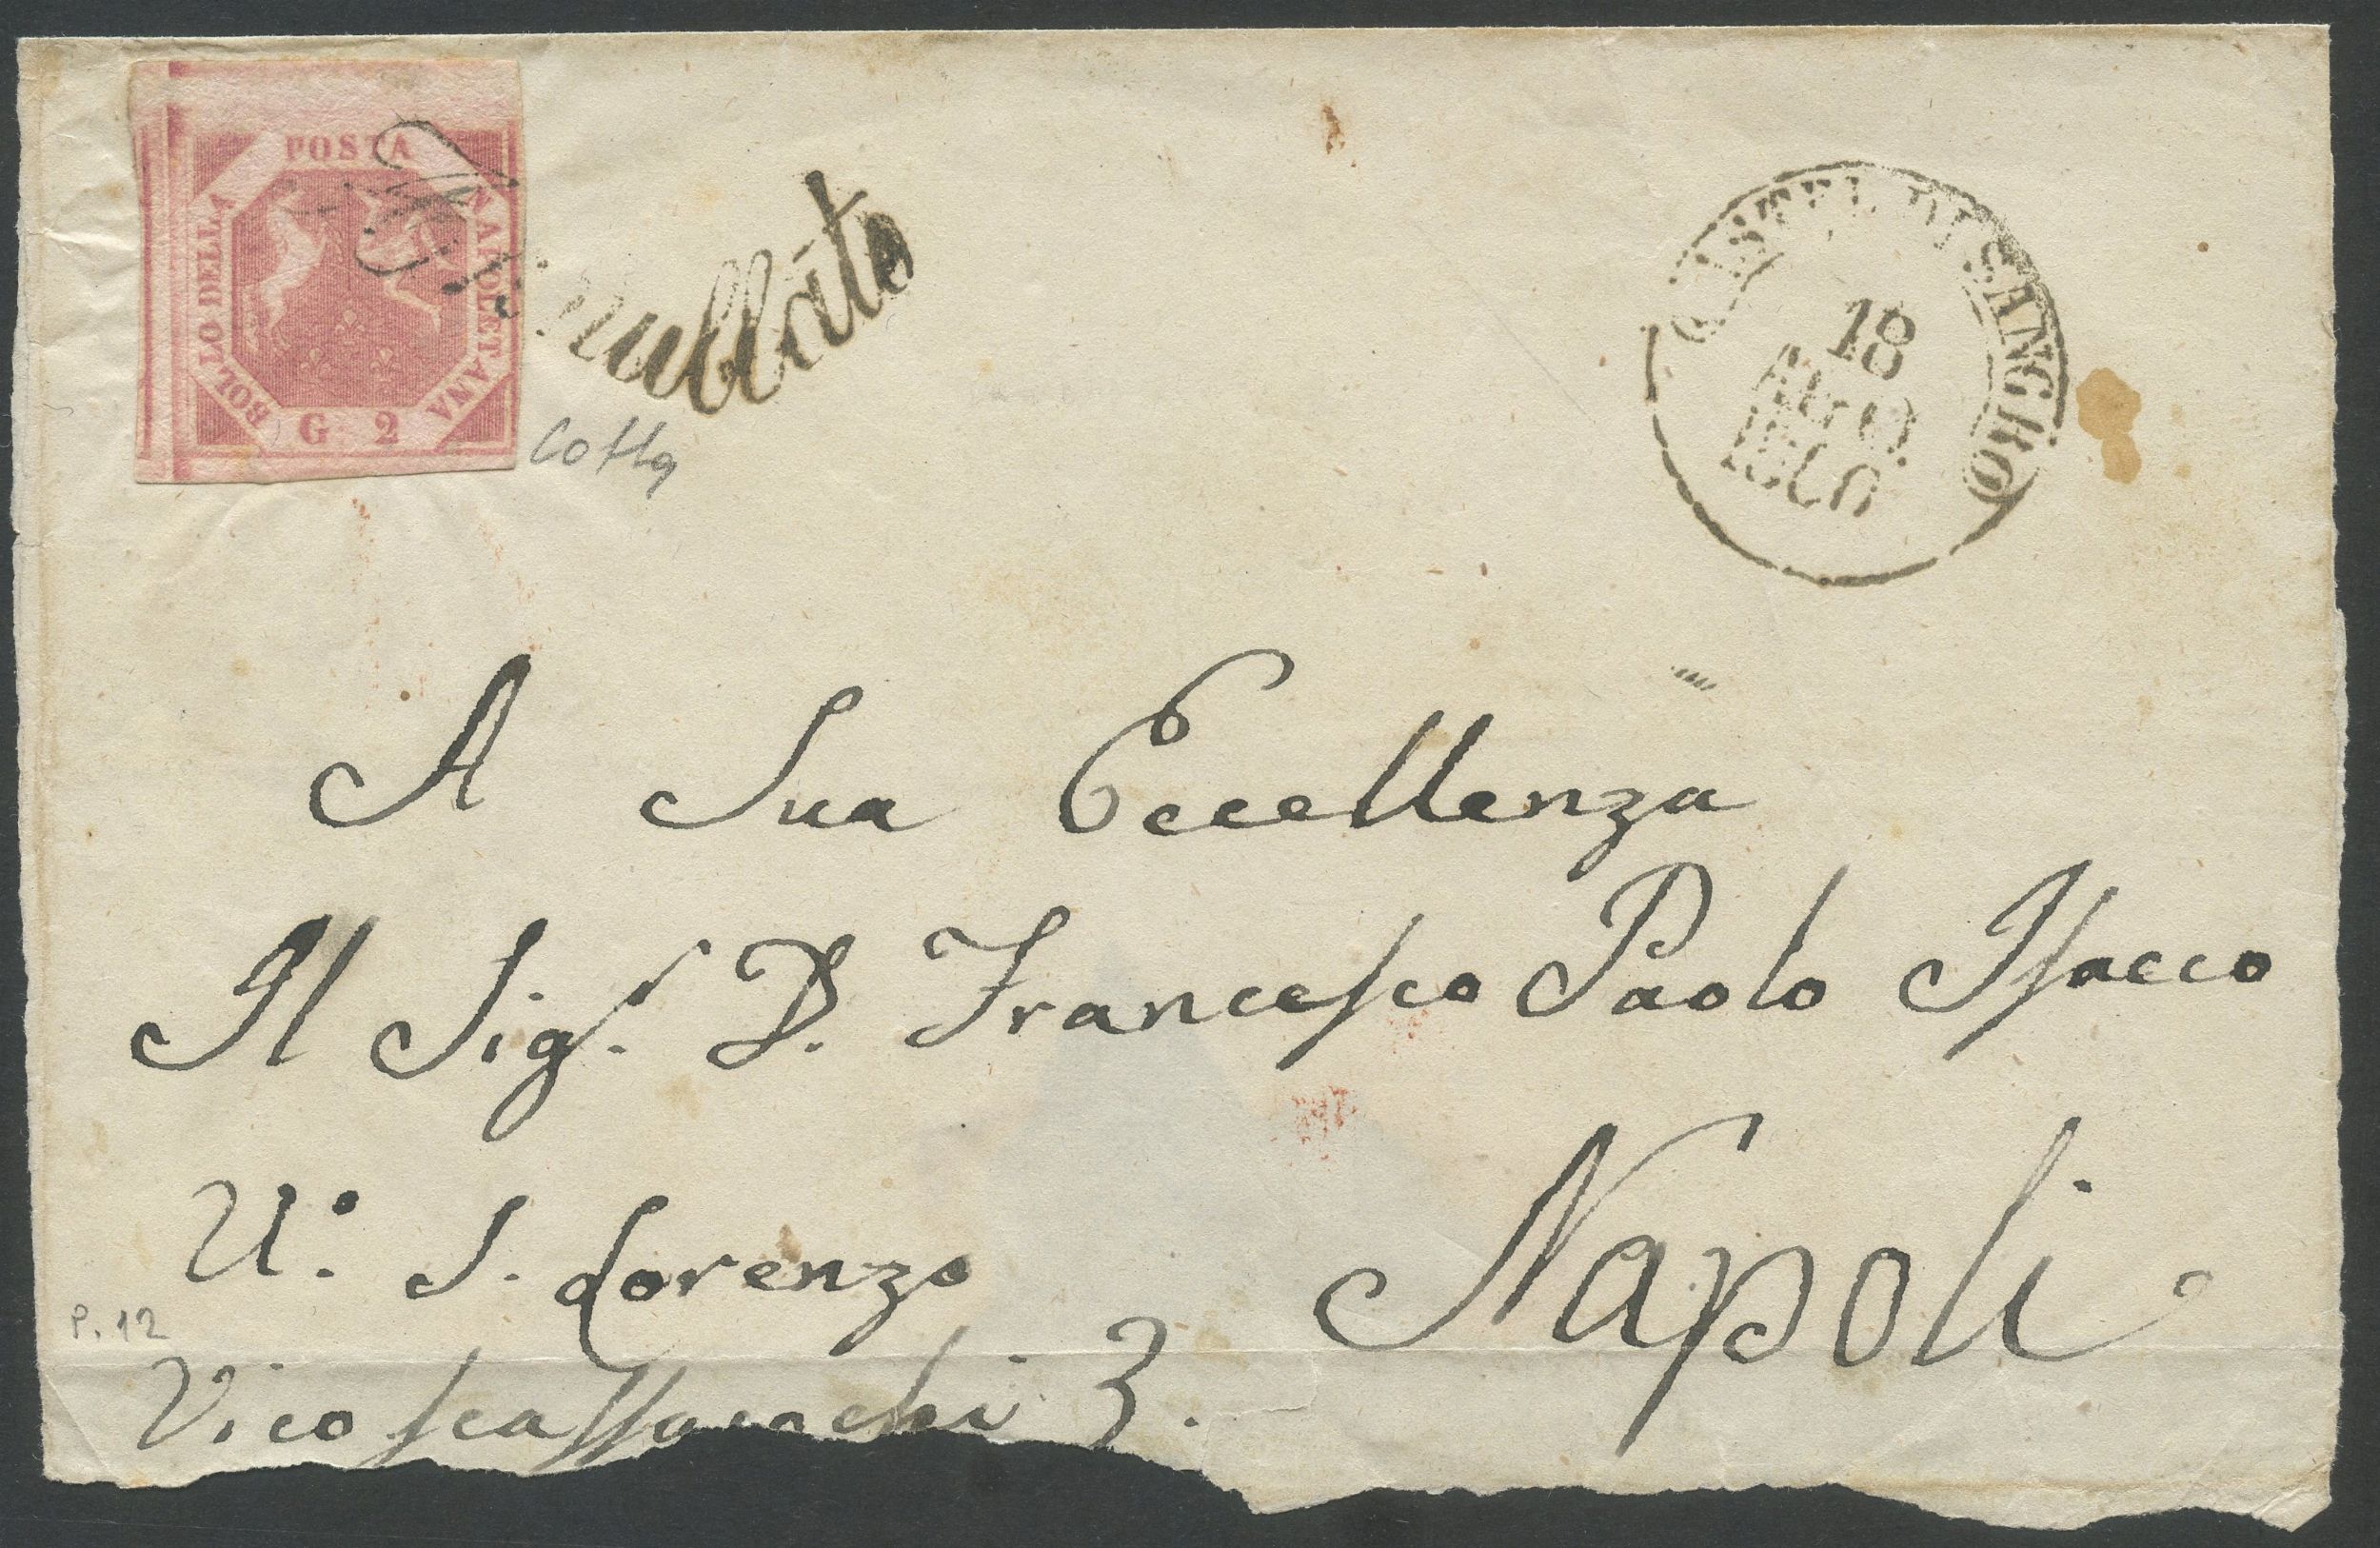 POSTA
NAPOLETANA
BOLLO DELLA
G 2
Annullato
Cotta
CASTEL DI SANGRO
18
1860
A Sua Eccellenza
Il Sigr. D. Francesco Paolo Isacco
U.º S. Lorenzo
Napoli
P. 12
Vico scassacocchi 3.